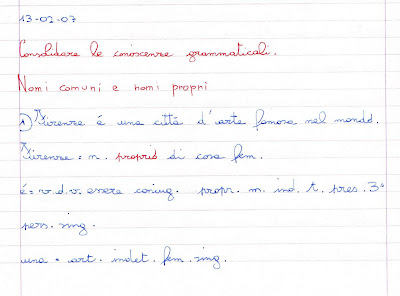 13-02-07
Consolidare le conoscenze grammaticali.
Nomi comuni e nomi propri
A Firenze é una città d'arte famosa nel mondo.
Firenze = n. proprio di cosa fem.
é = v. d. v. essere coniug. propr. m. ind. t. pres. 3ª
pers. sing.
una = art. indet. fem. sing.